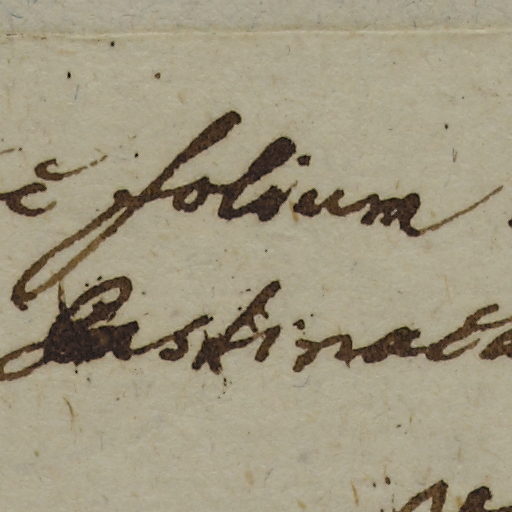 č folium
Pastinaca